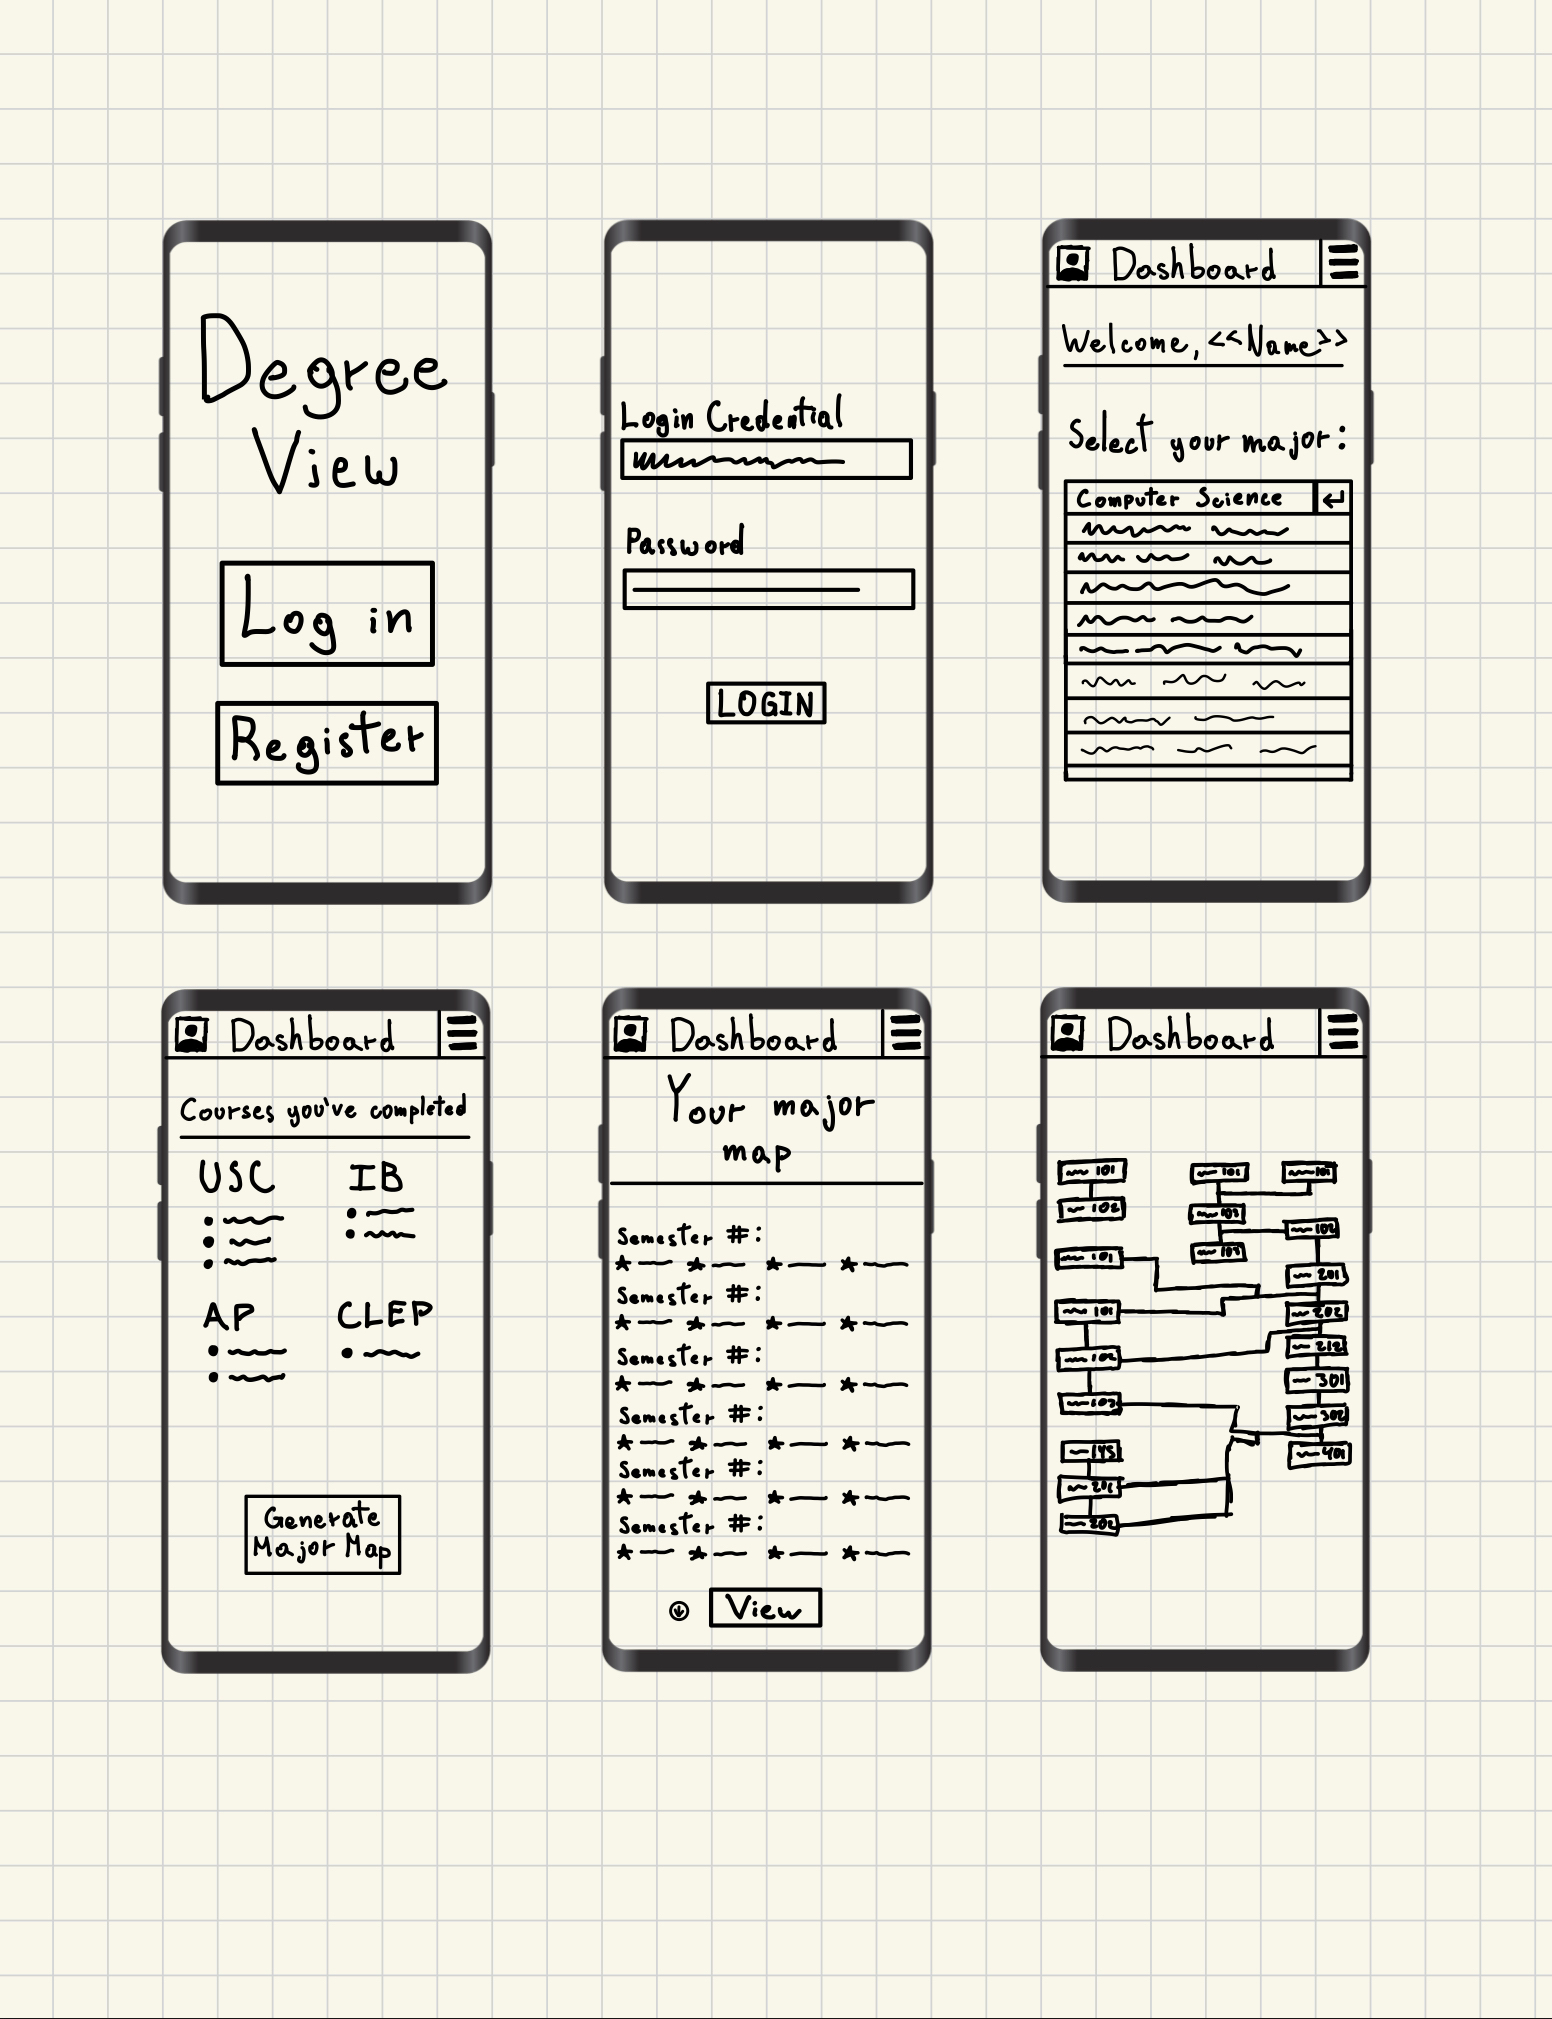 Degree
View
Log in
Register
Login Credential
Password
LOGIN
Dashboard
Welcome, <<Name>>
Select your major:
Computer Science
Dashboard
Courses you've completed
USC IB
AP CLEP
Generate
Major Map
Dashboard
Your major
map
Semester #:
Semester #:
Semester #:
Semester #:
Semester #:
Semester #:
View
Dashboard
101 101 101
102 103
102
101
201
101 202
102 212
103 301
302
145 401
202